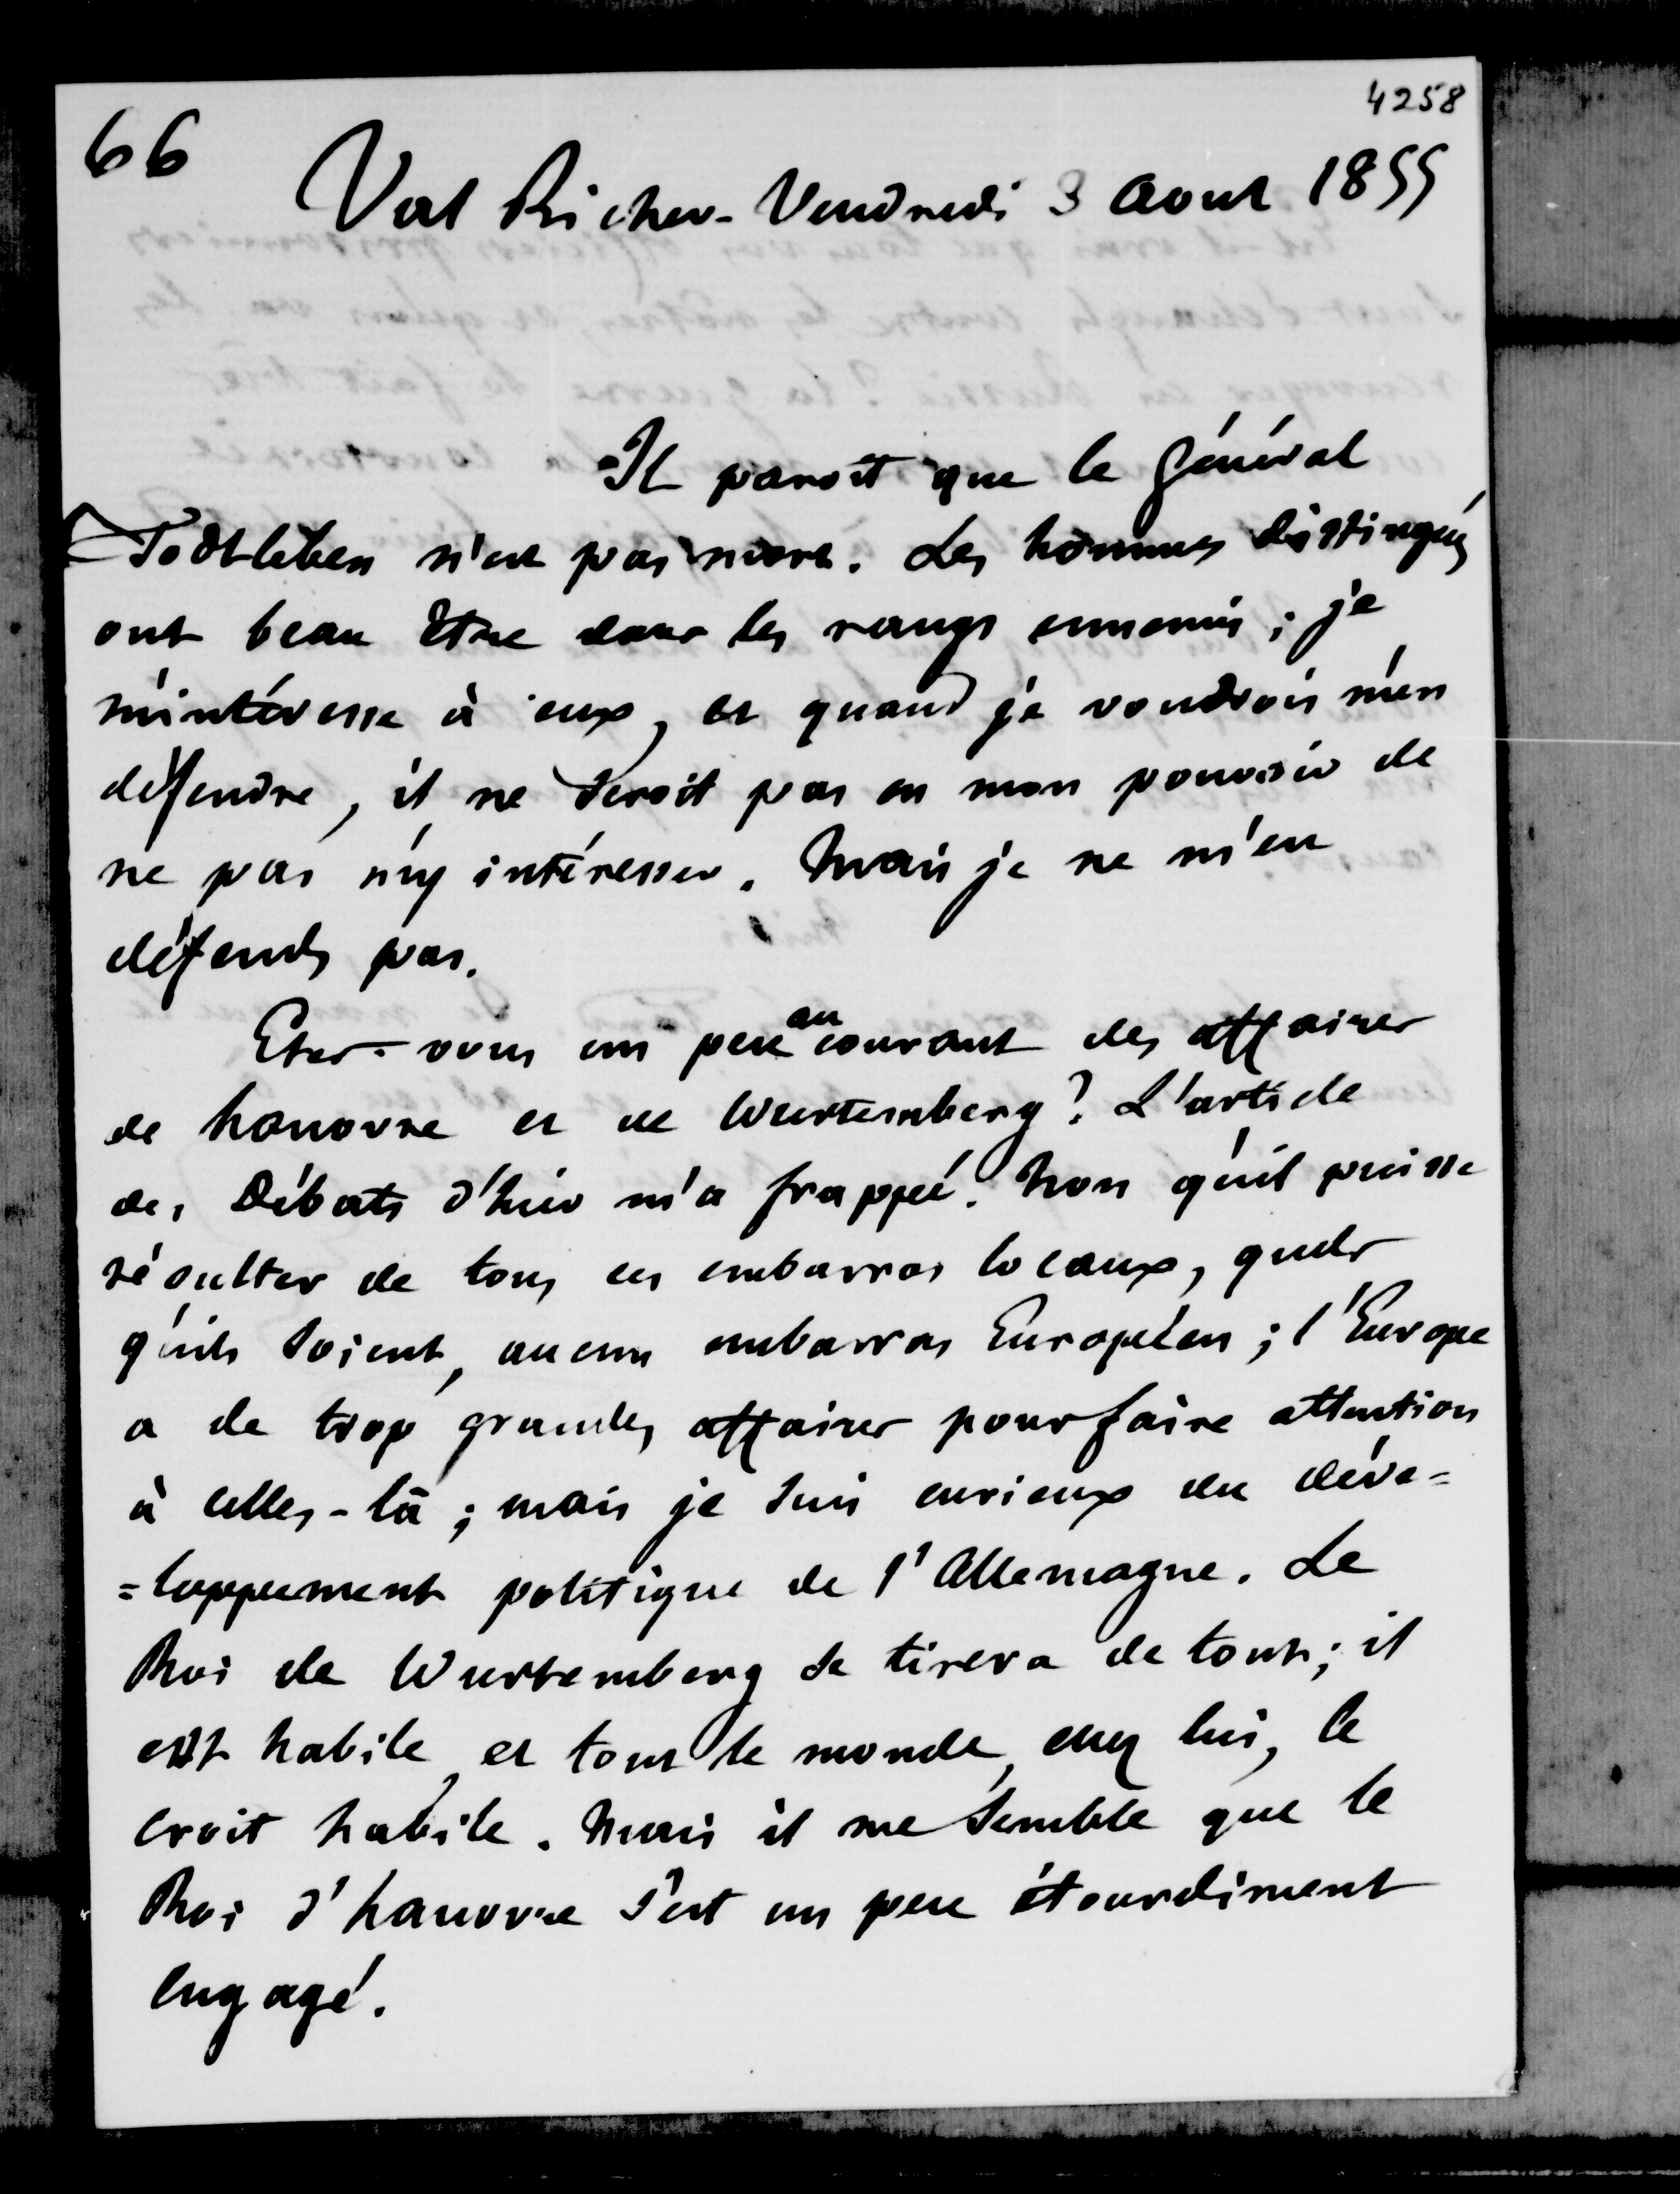 4258
66
Val Richer - Vendredi 3 Aout 1855
Il paroît que le général
Todtleben n'est pas mort. Les hommes distingués
ont beau être dans les rangs ennemis ; je
m'intéresse à eux, et quand je voudrois m'en
défendre, il ne seroit pas en mon pouvoir de
ne pas m'y intéresser. Mais je ne m'en
défends pas.
Etes-vous un peu au courant des affaires
de hanovre et de Wurtemberg ? L'article
des Débats d'hier m'a frappé. Non qu'il puisse
résulter de tous ces embarras locaux, quels
qu'ils soient, aucun embarras Européen ; l'Europe
a de trop grandes affaires pour faire attention
à celles-là ; mais je suis curieux du déve=
=loppement politique de l'Allemagne. Le
Roi de Wurtemberg se tirera de tout ; il
est habile, et tout le monde, chez lui, le
croit habile. Mais il me semble que le
Roi d'hanovre s'est un peu étourdiment
engagé.